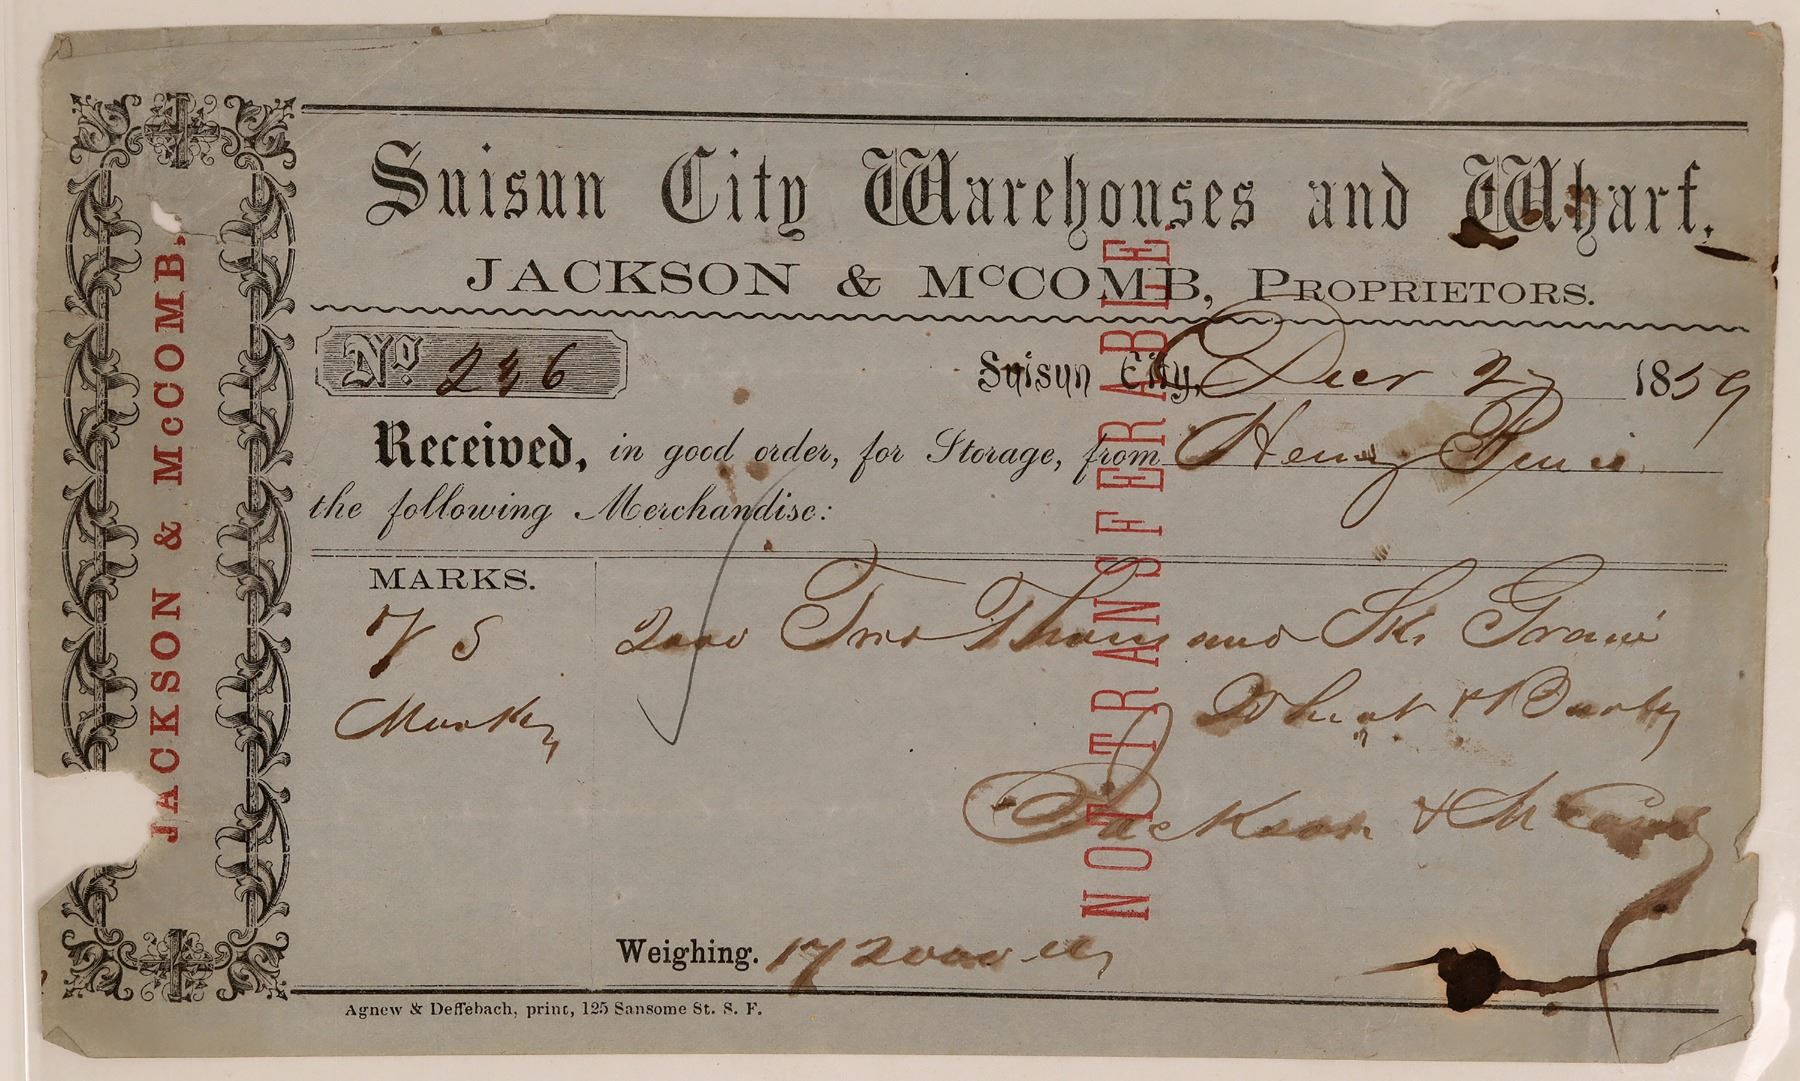 Suisun City Warehouses and Wharf.
JACKSON & McCOMB, PROPRIETORS.
No. 236
Suisun City, Decr 27 1859
Received, in good order, for Storage, from Henry
the following Merchandise:
MARKS.
2000 Two Thousand Sks Grain
Wheat & Barley
Jackson & McComb
Weighing. 172000 lbs
Agnew & Deffebach, print, 125 Sansome St. S. F.
JACKSON & McCOMB.
NOT TRANSFERABLE.